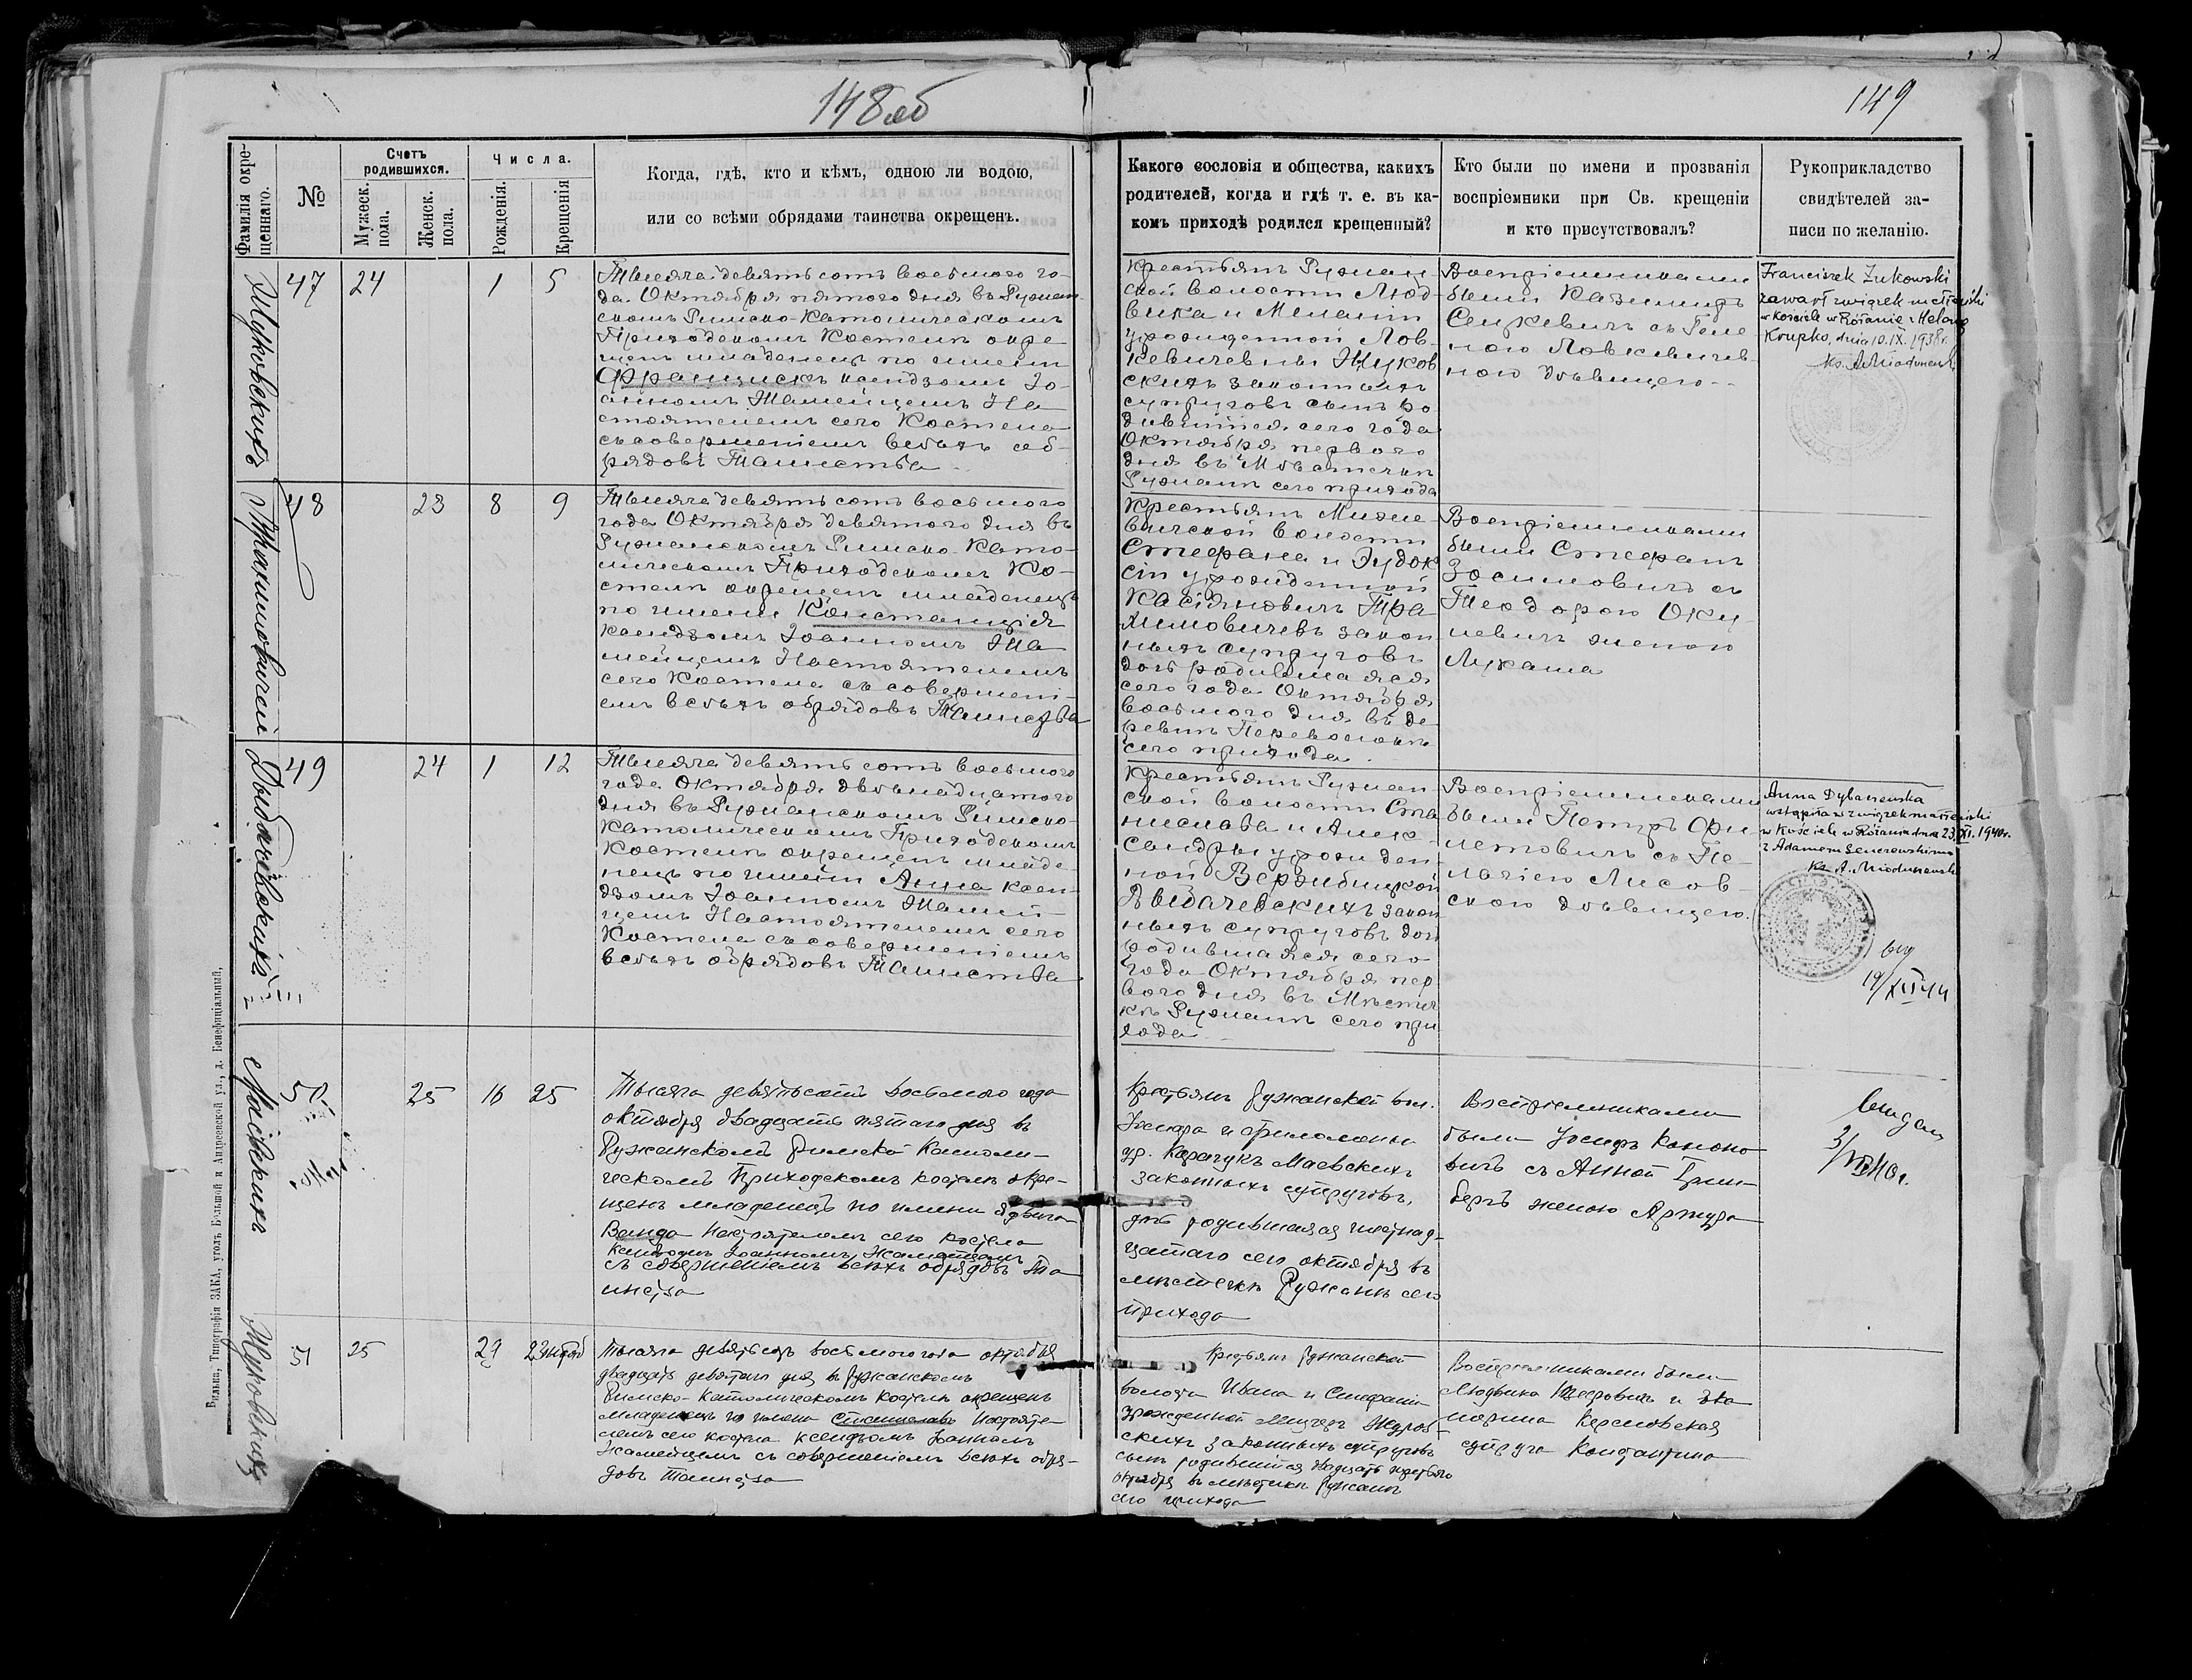 148об
149
Фамилія окре-
щеннаго.
№
Счетъ
родившихся.
Мужеск.
пола.
Женск.
пола.
Числа.
Рожденія.
Крещенія
Когда, гдѣ, кто и кѣмъ, одною ли водою,
или со всѣми обрядами таинства окрещенъ.
Какого сословія и общества, какихъ
родителей, когда и гдѣ т. е. въ ка-
комъ приходѣ родился крещенный?
Кто были по имени и прозванія
воспріемники при Св. крещеніи
и кто присутствовалъ?
Рукоприкладство
свидѣтелей за-
писи по желанію.
Жуковскихъ
47 24 1 5
Тысяча девятьсотъ восьмого го-
да Октября пятого дня въ Ружан-
скомъ Римско-Католическомъ
Приходскомъ Костелѣ окре-
щенъ младенецъ по имени
Францискъ ксендзомъ Іо-
анномъ Жамейцемъ На
стоятелемъ сего Костела
съ совершеніемъ всѣхъ об-
рядовъ Таинства
Крестьянъ Ружан
ской волости Люд
вика и Меланіи
урожденной Лов-
кевичевны Жуков
скихъ законныхъ
супруговъ сынъ ро
дившійся сего года
Октября первого
дня въ Мѣстечкѣ
Ружанѣ сего прихода
Воспріемниками
были Казимиръ
Сенкевичъ съ Геле
ною Ловкевичев-
ною дѣвицею
Franciszek Żukowski
zawarł związek małżeński
w Kościele w Różanie z Heleną
Krupko, dnia 10.IX.1938 r.
ks. A. Mioduszewski
48 23 8 9
Тысяча девятьсотъ восьмого
года Октября девятого дня въ
Ружанскомъ Римско-Като-
лическомъ Приходскомъ Ко-
стелѣ окрещенъ младенецъ
по имени Констанція
ксендзомъ Іоанномъ Жа
мейцемъ Настоятелемъ
сего Костела съ совершені-
емъ всѣхъ обрядовъ Таинства
Крестьянъ
вичской волости
Стефана и Эудок
сіи урожденной
Касіяновичъ Тра
химовичевъ закон
ныхъ супруговъ
дочь родившаяся
сего года Октября
восьмого дня въ де
ревнѣ Переволокѣ
сего прихода
Воспріемниками
были Стефанъ
Зосимовичъ съ
Теодорою Оку
невичъ женою
Лукаша
49 24 1 12
Тысяча девятьсотъ восьмого
года Октября двѣнадцатого
дня въ Ружанскомъ Римско-
Католическомъ Приходскомъ
Костелѣ окрещенъ младе
нецъ по имени Анна ксен-
дзомъ Іоанномъ Жамей-
цемъ Настоятелемъ сего
Костела съ совершеніемъ
всѣхъ обрядовъ Таинства
Крестьянъ Ружан
ской волости Ста
нислава и Алек
сандры урожден
ной Вержбицкой
Дыбачевскихъ закон
ныхъ супруговъ доч
родившаяся сего
года Октября пер
вого дня въ Мѣстеч
кѣ Ружанѣ сего при
хода
Воспріемниками
были Петръ Фи
летовичъ съ Пе-
лагіею Лисов-
скою дѣвицею.
Anna Dybaczewska
wstąpiła w związek małżeński
w Kościele w Różanie dnia 23.XI.1940 r.
z Adamem
ks. A. Mioduszewski
19/XII 44
Маевскихъ
50 25 16 25
Тысяча девятьсотъ восьмого года
октября двадцать пятаго дня въ
Ружанскомъ Римско Католи-
ческомъ Приходскомъ костелѣ окре-
щенъ младенецъ по имени Ядвига
Ванда настоятелемъ сего костела
ксендзомъ Іоанномъ Жамейцемъ
съ совершеніемъ всѣхъ обрядовъ Та
инства
Крестьянъ Ружанской вол.
Іосифа и Филомены
ур. Карачукъ Маевскихъ
законныхъ супруговъ,
дочь родившаяся шестнад-
цатаго сего октября въ
мѣстечкѣ Ружанѣ сего
прихода
Воспріемниками
были Іосифъ Кононо
вичъ съ Анной Грин-
бергъ женою Артура
Выдан
3/VI 40 г.
51 25 23 29
Тысяча девятьсотъ восьмого года октября
двадцать девятаго дня въ Ружанскомъ
Римско-Католическомъ костелѣ окрещенъ
младенецъ по имени Станиславъ настояте
лемъ сего костела ксендзомъ Іоанномъ
Жамейцемъ съ совершеніемъ всѣхъ обря-
довъ Таинства
Крестьянъ Ружанской
волости Ивана и Стефаніи
урожденной
скихъ законныхъ супруговъ
сынъ родившійся двадцать третьяго
октября въ мѣстечкѣ Ружанѣ
сего прихода
Воспріемниками были
Людвика и Ека
терина
супруга Константина
Вильна, Типографія ЗАКА, уголъ Большой и Андреевской ул., д. Бенефиціальный.